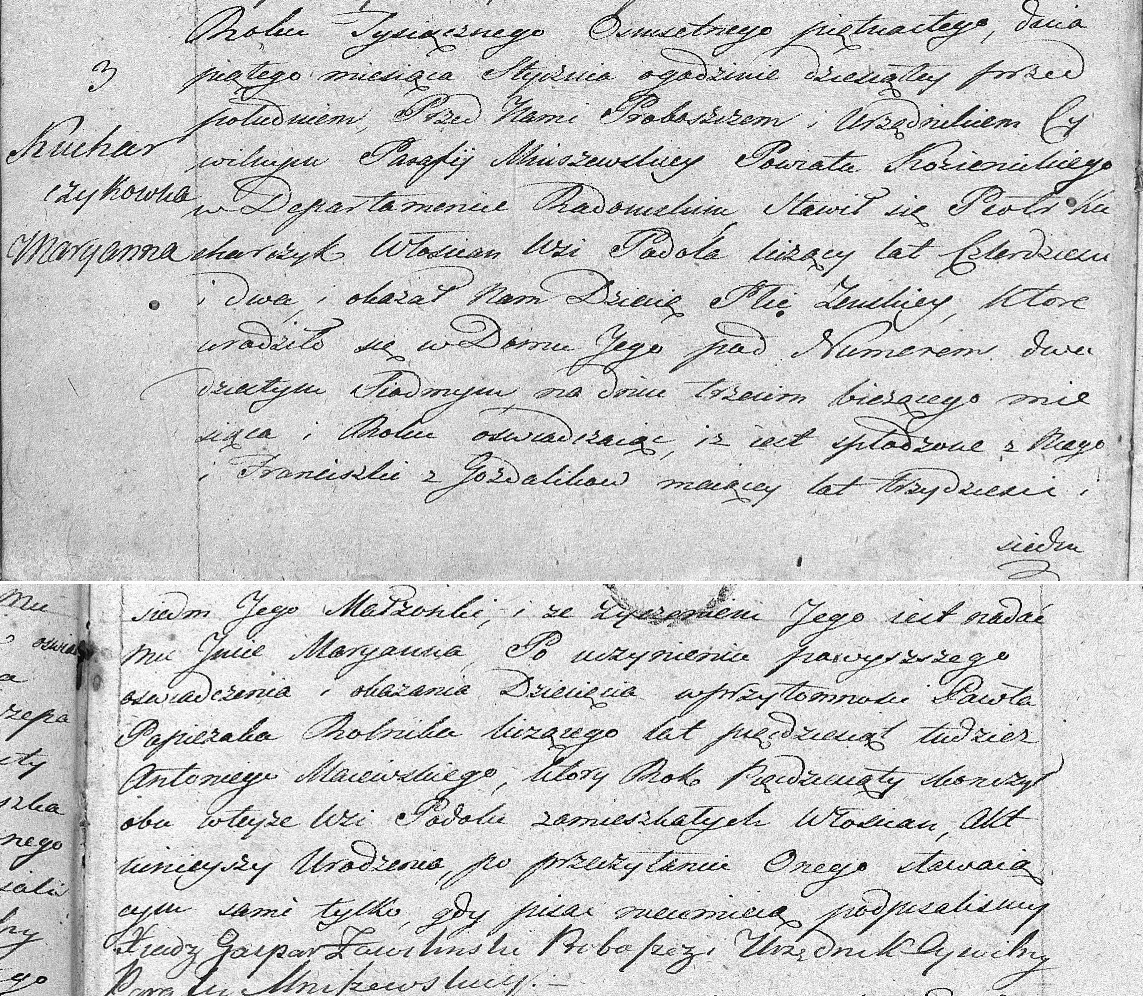 Roku Tysiącznego Osmsetnego piętnastego, dnia
piątego miesiąca Stycznia ogodzinie dziesiątey przed
południem, Przed Nami Proboszczem i Urzędnikiem Cy
wilnym Parafij Mniszewskiey Powiatu Kozienickiego
w Departamencie Radomskim Stawił się Piotr Ku
charczyk Włoscian Wsi Podola liczący lat Czterdziesci
i dwa, i okazał Nam Dziecię Płci Zenskiey, Które
urodziło się w Domu Jego pod Numerem dwu
dziestym Siodmym na dniu trzecim bieżącego mie
siąca i Roku oswiadczaiąc, iż iest spłodzone z Niego
i Franciszki z Gozdalikow maiącey lat trzydziesci i
siedm
3
Kuchar
czykowna
Maryanna
siedm Jego Małżonki, i ze życzeniem Jego iest nadać
mu Jmie Maryanna, Po uczynieniu powyższego
oswiadczenia i okazania Dziecięcia w przytomnosci Pawła
Papiezaka Rolnika liczącego lat pięcdziesiąt tudzież
Antoniego Maiewskiego, ktory Rok Pięcdziesiąty skonczył
obu wteyże Wsi Podolu zamieszkałych Włoscian, Akt
ninieyszy Urodzenia, po przeczytaniu Onego stawaią
cym sami tylko, gdy pisac nieumieią podpisalismy
Xiądz Gaspar Zawilinski Proboszcz i Urzędnik Cywilny
Parafii Mniszewskiey. –
mu
oswia
a
rzepa
ity
szka
nego
ny
go